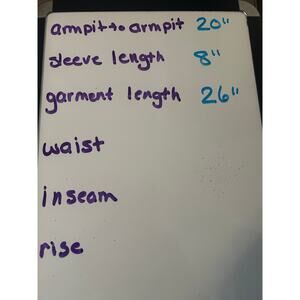 armpit to armpit 20"
sleeve length 8"
garment length 26"
waist
inseam
rise